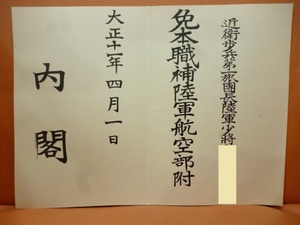 近衛歩兵第一旅團長陸軍少將
免本職補陸軍航空部附
大正十一年四月一日
内閣